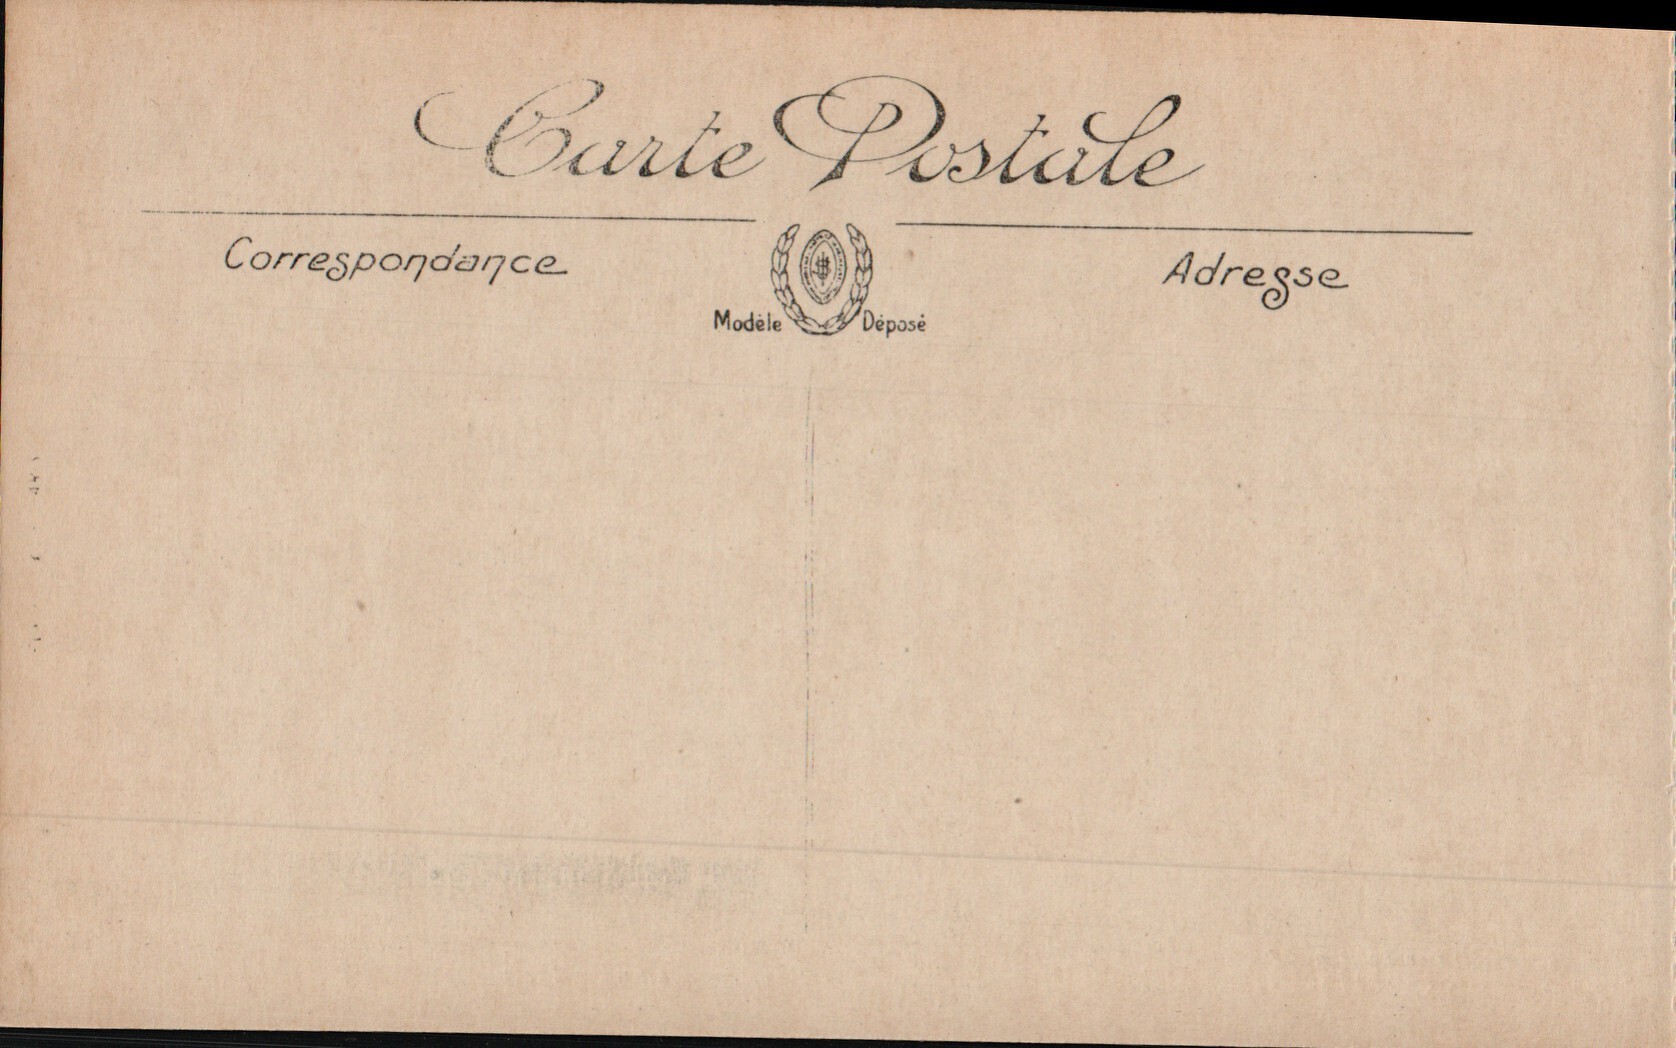 Carte Postale
Correspondance
Adresse
Modèle Déposé